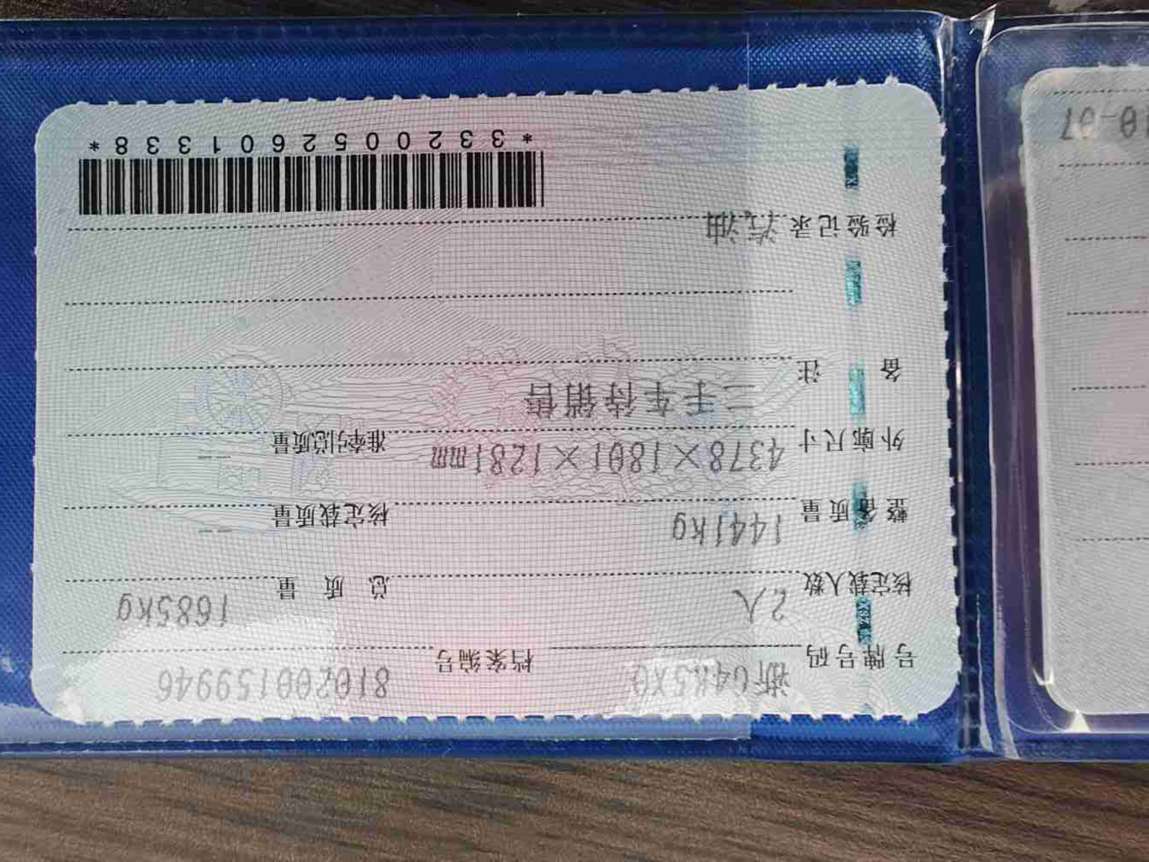 号牌号码 浙G4R5X0 档案编号 810200159946
核定载人数 2人 总质量 1685kg
整备质量 1441kg 核定载质量 --
外廓尺寸 4378×1801×1281mm 准牵引总质量 --
备注 二手车待销售
检验记录 汽油
*3320052601338*